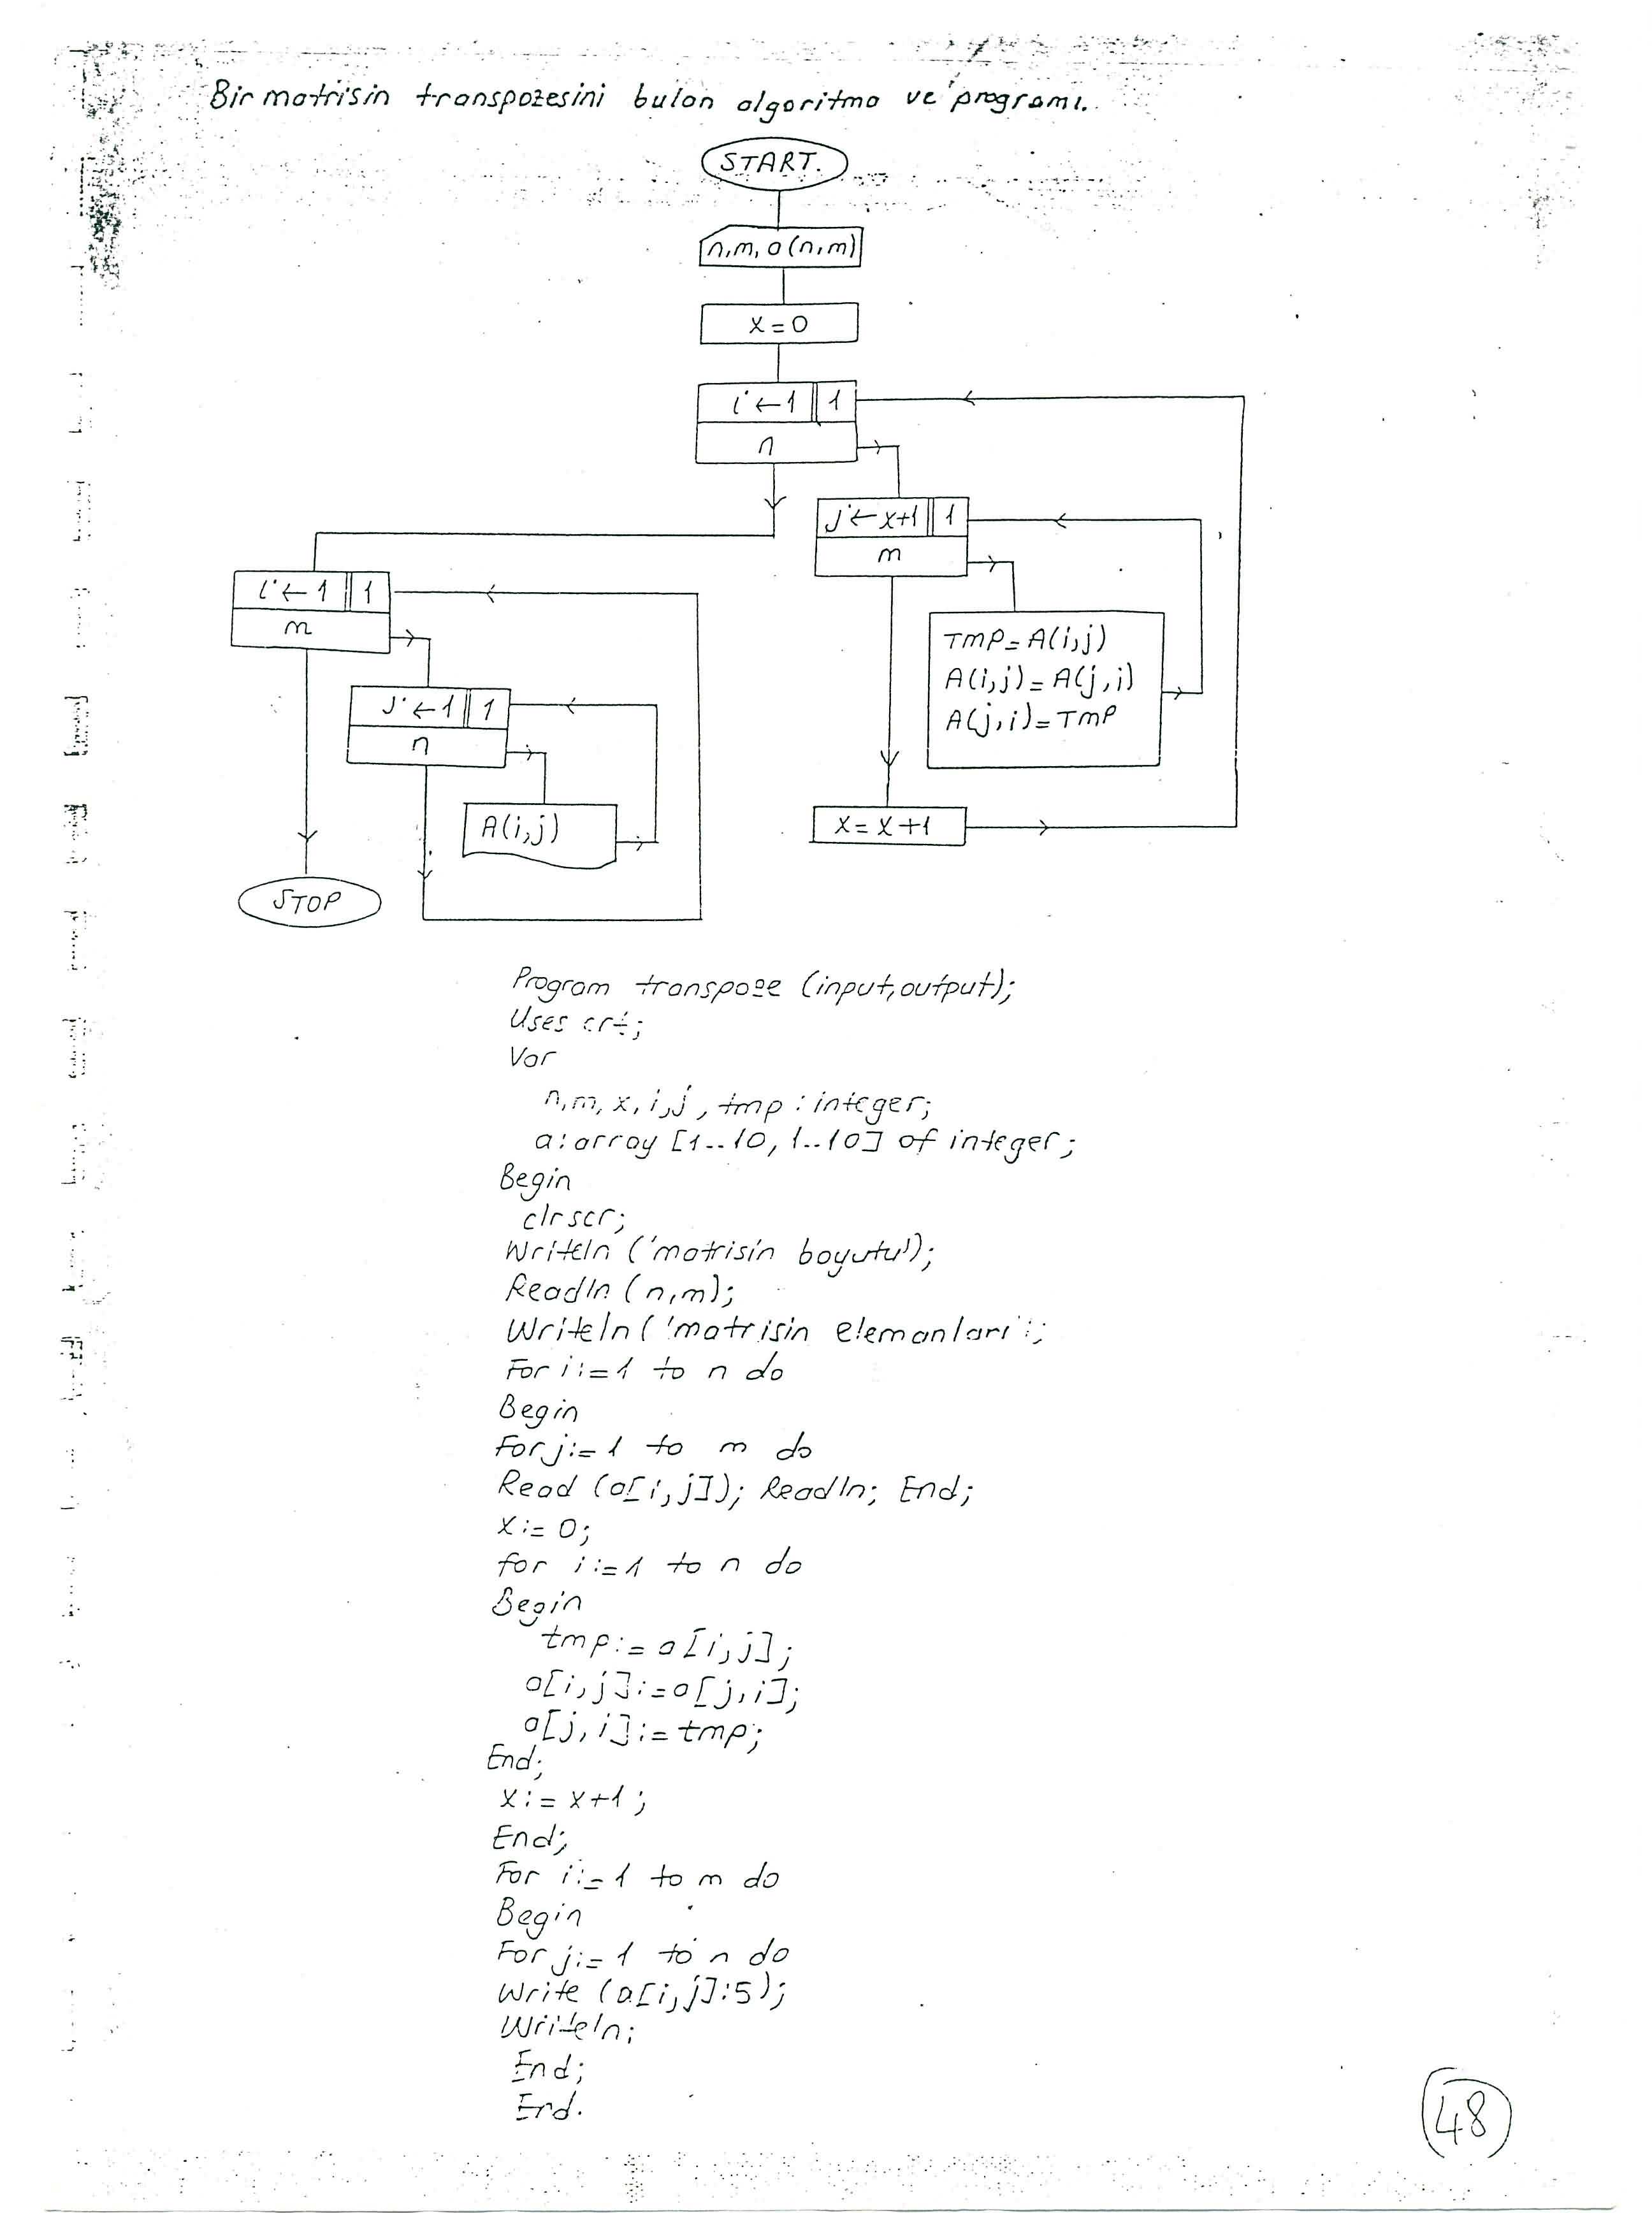 Bir matrisin transpozesini bulan algoritma ve programı.
START.
n,m,a(n,m)
x=0
i←1 1
n
j←x+1 1
m
i←1 1
m
TMP=A(i,j)
A(i,j)=A(j,i)
A(j,i)=TMP
j←1 1
n
A(i,j)
x=x+1
STOP
Program transpoze (input,output);
Uses crt;
Var
n,m,x,i,j,tmp:integer;
a:array [1..10,1..10] of integer;
Begin
clrscr;
Writeln ('matrisin boyutu');
Readln (n,m);
Writeln ('matrisin elemanları';
For i:=1 to n do
Begin
For j:=1 to m do
Read (a[i,j]); Readln; End;
x:=0;
for i:=1 to n do
Begin
tmp:=a[i,j];
a[i,j]:=a[j,i];
a[j,i]:=tmp;
End;
x:=x+1;
End;
For i:=1 to m do
Begin
For j:=1 to n do
Write (a[i,j]:5);
Writeln;
End;
End.
48